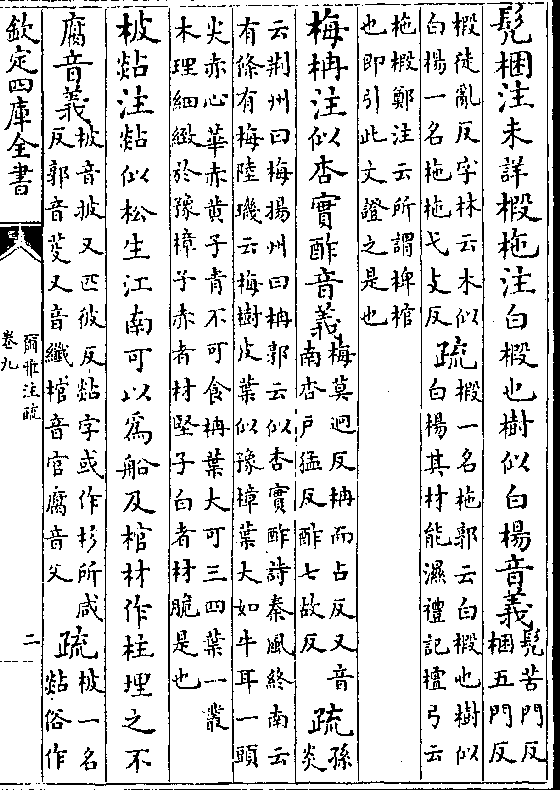 髡梱注未詳椴柂注白椴也樹似白楊音義髡苦門反
梱五門反
椴徒亂反字林云木似
白楊一名柂柂弋支反
疏椴一名柂郭云白椴也樹似
白楊其材能濕禮記檀弓云
柂椴鄭注云所謂椑棺
也即引此文證之是也
梅柟注似杏實酢音義梅莫迥反柟而占反又音
南杏戶猛反酢七故反
疏孫
炎
云荆州曰梅揚州曰柟郭云似杏實酢詩秦風終南云
有條有梅陸璣云梅樹皮葉似豫樟葉大如牛耳一頭
尖赤心華赤黄子青不可食柟葉大可三四葉一叢
木理細緻於豫樟子赤者材堅子白者材脆是也
柀煔注煔似松生江南可以為船及棺材作柱埋之不
腐音義柀音披又匹彼反煔字或作杉所咸
反郭音芟又音纖棺音官腐音父
疏柀一名
煔俗作
欽定四庫全書
爾雅注疏
卷九
二